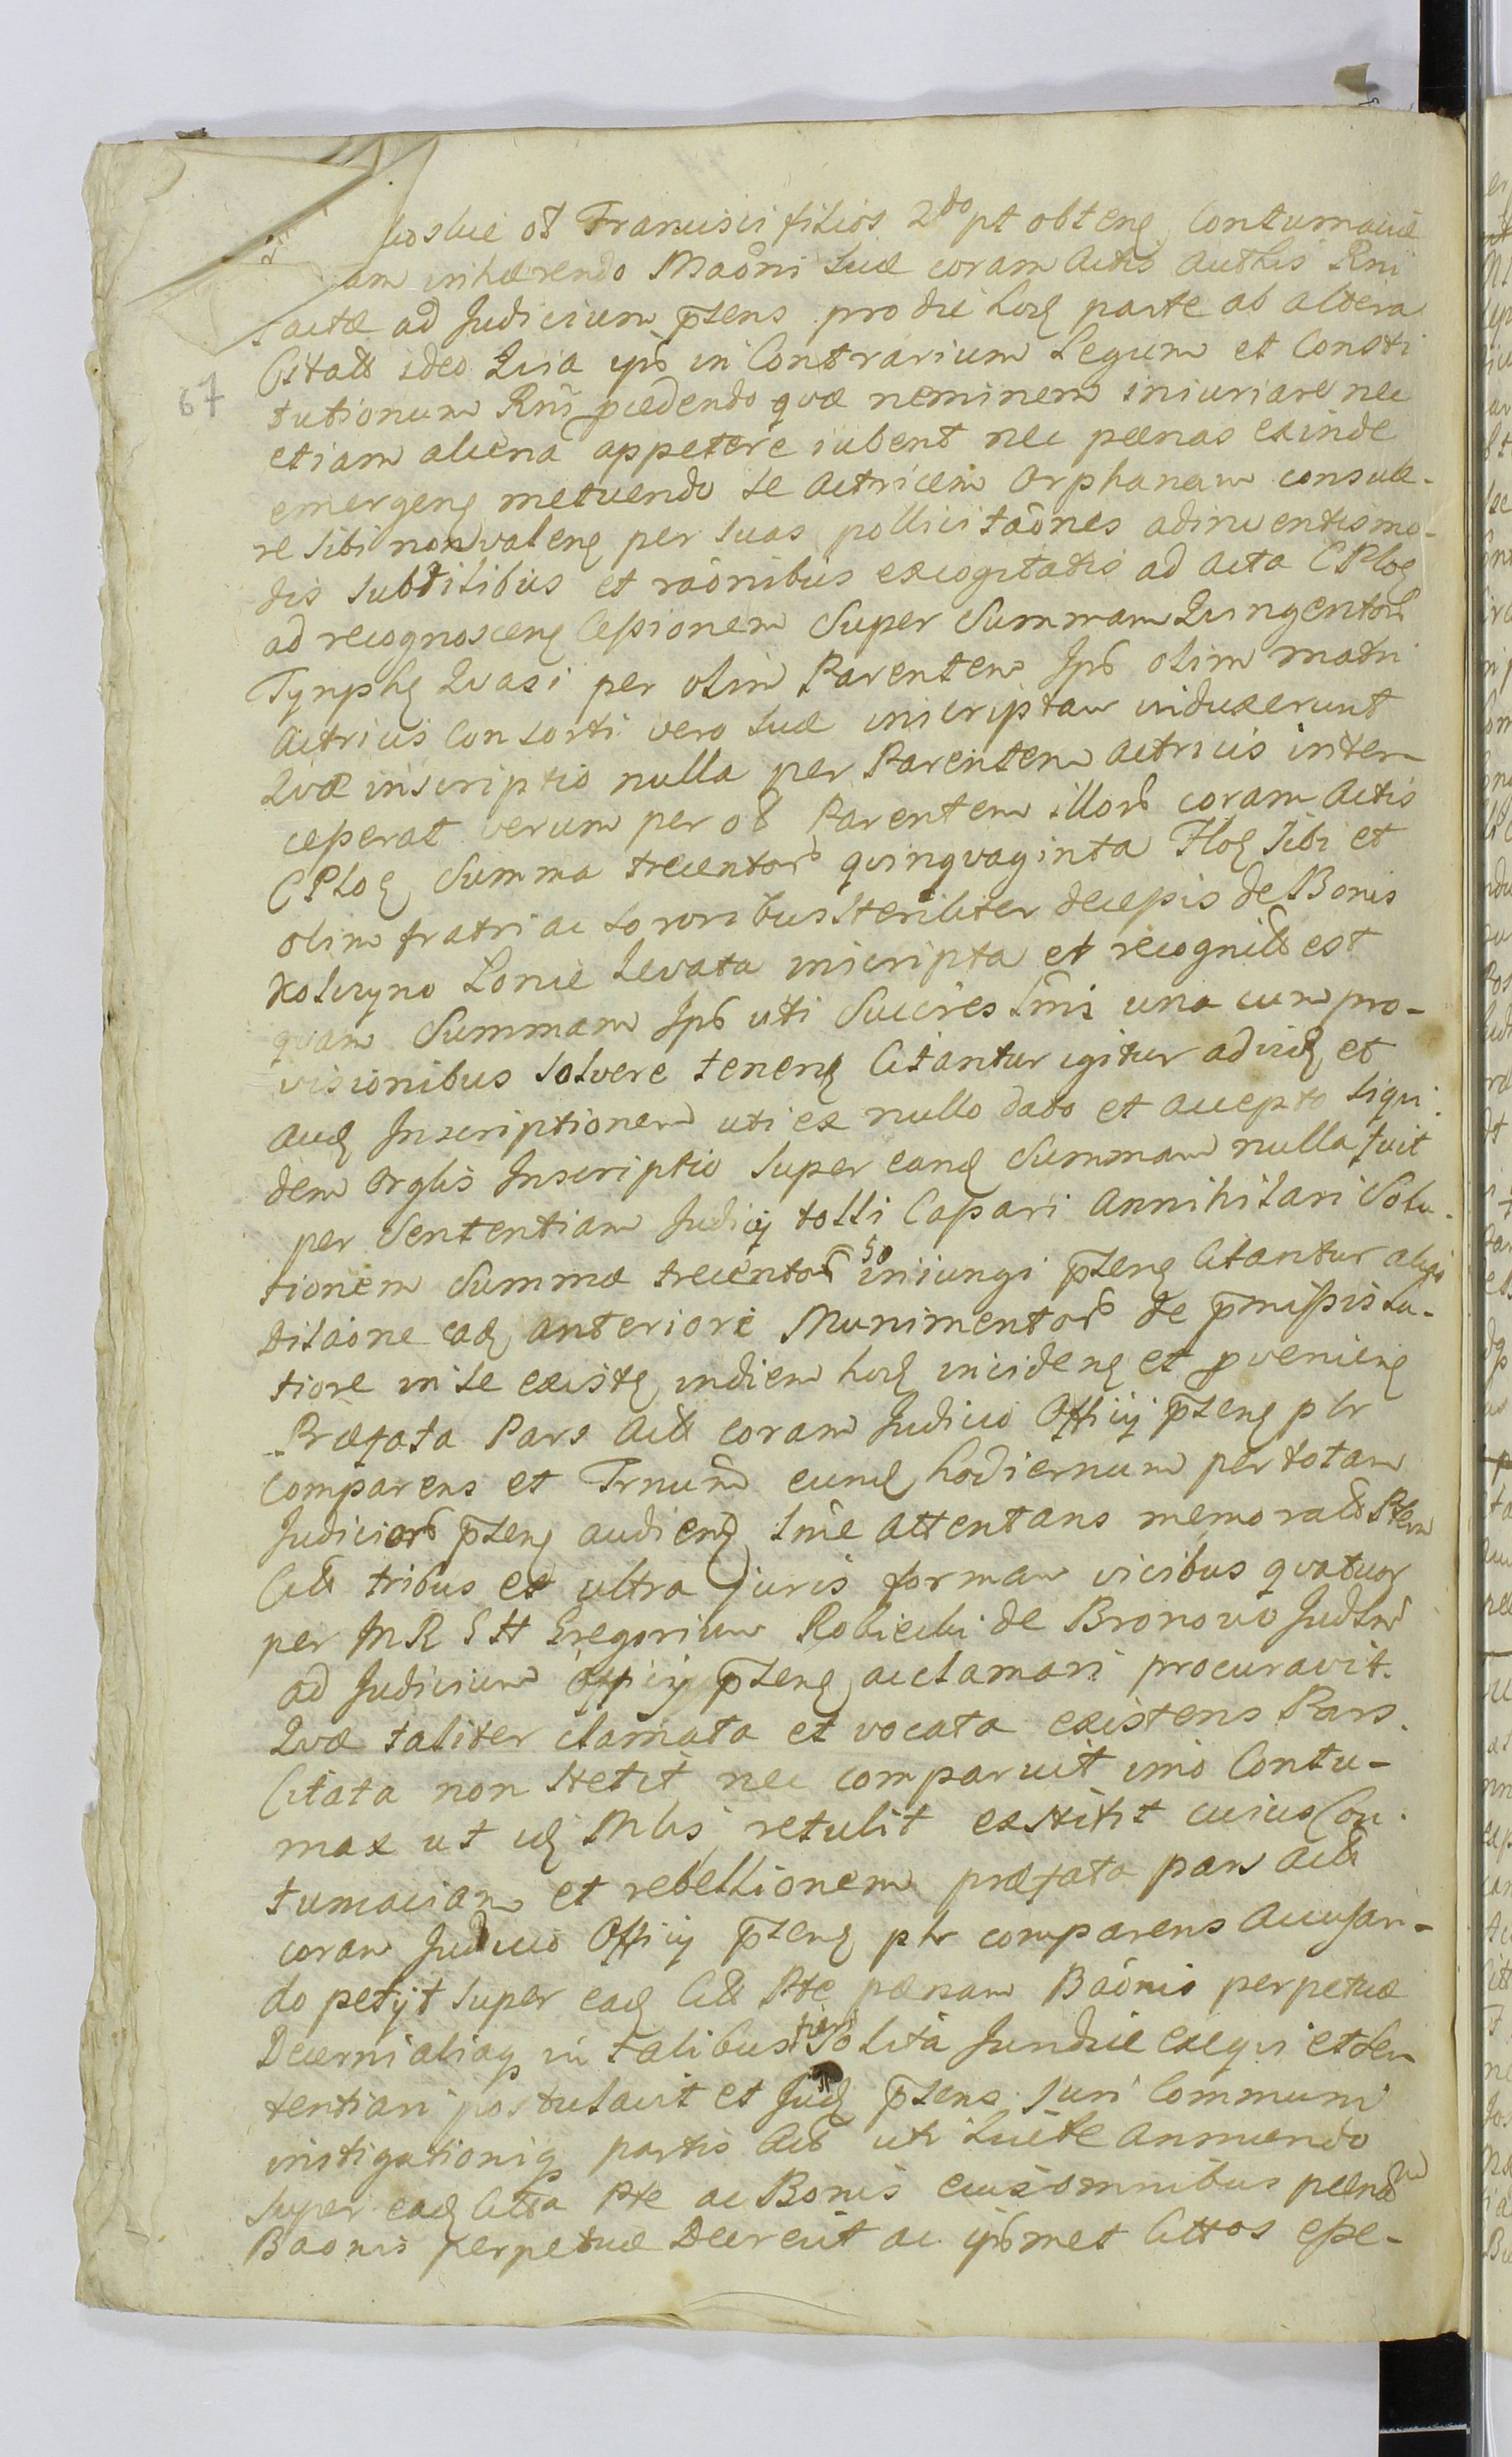 Francisci filios 2do pt obteng Contumaciæ
am inhærendo Maõni suæ coram Actis Authis Rni
factæ ad Judicium p̃tens pro die hodq parte ab altera
Citatã ideo Quia ipõ in Contrarium Legum et Consti
tutionum Rni pcedendo qvæ neminem iniuriare nec
67
etiam aliena appetere iubent nec pænas exinde
emergenq metuendo se Actricem Orphanam consule-
re sibi non valenq per suas pollicitaõnes adinventis mo-
dis subtilibus et raõnibus excogitatis ad acta CPlõq
ad recognoscenq Cessionem Super Summam Quingentorũ
Tynphq Qvasi per olim Parentem Ipõ olim matri
Actricis Consorti vero suæ inscriptam induxerunt
Qvæ inscriptio nulla per Parentem Actricis inter-
cesserat verum per oõ Parentem illorũ coram Actis
CPloq Summa trecentorũ qvinqvaginta Floq sibi et
olim fratri ac sororibus steriliter decessis de Bonis
Kolczyno Levata inscripta et recognitã est
qvam Summam Ipõ uti Succres Lmi una cum pro-
visionibus solvere tenenq Citantur igitur ad et
Inscriptionem uti ex nullo dato et accepto siqui
dem Orglis Inscriptio super eanq Summam nulla fuit
per Sententiam Judicij tolli Cassari Annihilari Solu-
tionem Summæ trecentorũ 50 iniungi p̃tenq Citantur
Dilaõne eadq anteriori Munimentorũ de p̃missis la-
tiore in se existq indiem hodq incidenq et pvenienq
Præfata Pars Actã coram Judicio Officij p̃tenq plr
Comparens et Trnum eunq hodiernum per totam
Judiciorũ p̃tenq audienq Sme attentans memoratã Ptem
Citã tribus et ultra juris formam vicibus qvatuor
per MR Gregorium Robiecki de Bronowo
ad Judicium Officij p̃tenq acclamari procuravit
Qvæ taliter clamata et vocata existens Pars
Citata non stetit nec comparuit imo Contu-
max ut idq Mlis retulit exstitit cuius Con-
tumaciam et rebellionem præfata pars Actã
coram Judicio Officij p̃tenq plr comparens Accusan-
do petijt super eadq Citã Pte pænam Baõnis perpetuæ
Decerni aliaq in talibus fieri solita Jundice exeqvi et Sen
tentiari postulavit et Judq p̃tens Juri Communi
instigationiq partis Actã uti annuendo
super eadq Citata Pte ac Bonis eius omnibus pænam
Baonis perpetuæ Decrevit ac ipõmet Cittos esse-